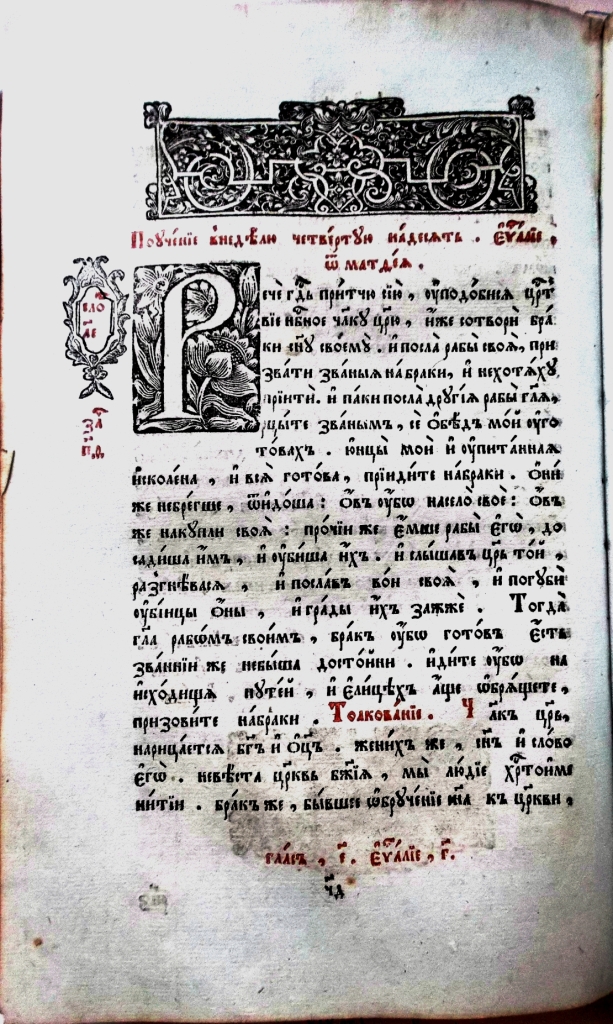 Поуче́нїе внедѣ́лю четве́ртую на́десять . є҆ѵⷢ҇лїе ,
ѿ матѳе́я .
Речѐ гд҇ь при́тчю сїю̀ , ᲂу҆подо́бися црⷭ҇т
вїе нб҃ное чл҃ку цр҃ю , и҆́же сотворѝ бра́
ки сн҃у своемꙋ̀ . и҆ посла̀ рабы̀ своя̀ , при
зва́ти зва́ныя на бра́ки , и҆ нехотя́хꙋ
прїитѝ . и҆ па́ки посла̀ дрꙋгі́я рабы̀ гл҃я ,
рцы́те зва́нымъ , сѐ ѡ҆бѣ́дъ мо́й ᲂу҆го
то́вахъ . ю҆нцы̀ моѝ и҆ ᲂу҆пи́танная
и҆сколе́на , и҆ вся̀ гото́ва , прїиди́те на бра́ки . ѻ҆ни́
же небре́гше , ѿидо́ша : ѻ҆́въ ᲂу҆́бѡ насело̀ своѐ : ѻ҆́въ
же накꙋ́пли своя̀ : про́чїи же є҆́мше рабы̀ є҆гѡ̀ , до
сади́ша и҆́мъ , и҆ ᲂу҆би́ша и҆́хъ . и҆ слы́шавъ цр҃ь то́й ,
разгнѣ́вася , и҆ посла́въ во́и своя̀ , и҆ погꙋбѝ
ᲂу҆бі́йцы ѻ҆́ны , и҆ гра́ды и҆́хъ зажжѐ . Тогда̀
гл҃а рабѡ́мъ свои́мъ , бра́къ ᲂу҆́бѡ гото́въ є҆́сть
зва́ннїи же небы́ша досто́йни . и҆ди́те ᲂу҆́бѡ на
и҆схо́дища пꙋте́й , и҆ є҆ли́цѣхъ а҆́ще ѡ҆бря́щете ,
призови́те на бра́ки . Толкова́нїе . Чл҃къ цр҃ь ,
нарица́ется бг҃ъ и҆ ѻ҆ц҃ъ . жени́хъ же , сн҃ъ и҆ сло́во
є҆гѡ̀ . невѣ́ста цр҃квь бж҃їя , мы̀ лю́дїе хрⷭ҇тои҆ме
ни́тїи . бра́къ же , бы́вшее ѡ҆брꙋче́нїе къ цр҃кви ,
за
гла́съ , є҃ . є҆ѵⷢ҇лїе , г҃ .
ч҃д